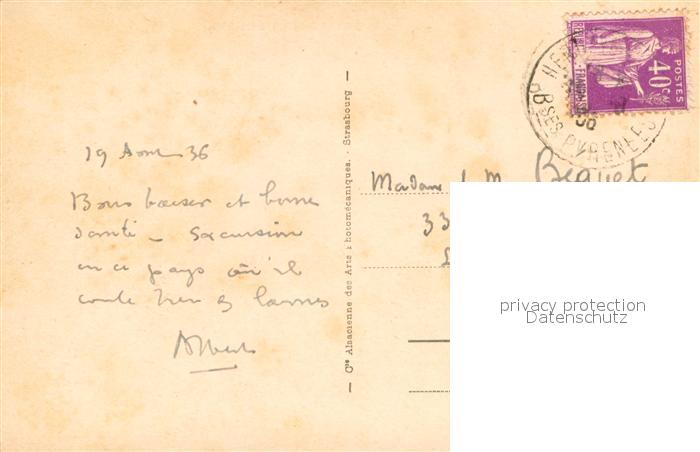 19 Aout 36
Bons baiser et bonne
santé - Excursion
en ce pays où il
coule
Albert
Cie Alsacienne des Arts Photomécaniques. - Strasbourg
Madame
33
POSTES
40c
Bses PYRENEES
36
privacy protection
Datenschutz